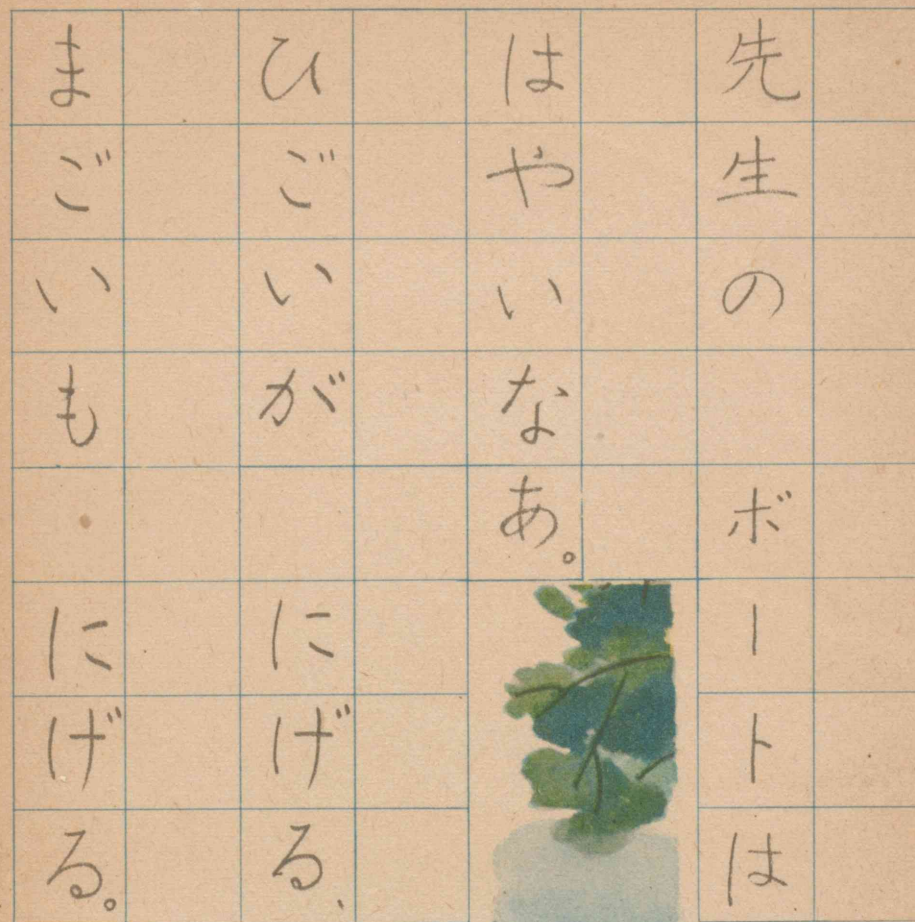 先生の　ボートは
はやいなあ。
ひごいが　にげる、
まごいも　にげる。